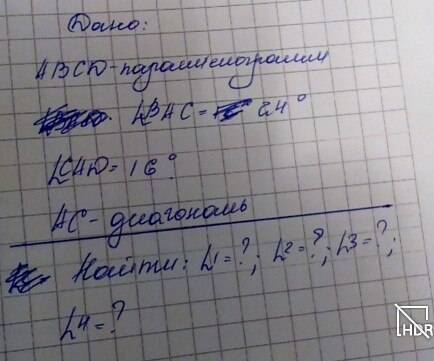 Дано:
ABCD-параллелограмм
∠BAC= 24°
∠CAD=16°
AC-диагональ
Найти: ∠1=?; ∠2=?; ∠3=?;
∠4=?
HDR